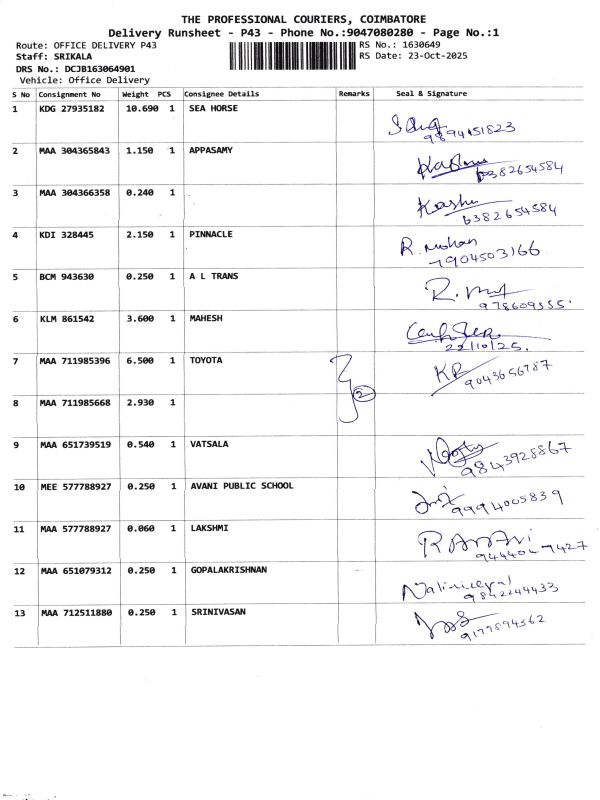 THE PROFESSIONAL COURIERS, COIMBATORE
Delivery Runsheet - P43 - Phone No.:9047080280 - Page No.:1
Route: OFFICE DELIVERY P43 RS No.: 1630649
Staff: SRIKALA RS Date: 23-Oct-2025
DRS No.: DCJB163064901
Vehicle: Office Delivery
S No Consignment No Weight PCS Consignee Details Remarks Seal & Signature
1 KDG 27935182 10.690 1 SEA HORSE
9894151823
2 MAA 304365843 1.150 1 APPASAMY
6382654584
3 MAA 304366358 0.240 1
6382654584
4 KDI 328445 2.150 1 PINNACLE R. mohan
7904503166
5 BCM 943630 0.250 1 A L TRANS
6 KLM 861542 3.600 1 MAHESH
22/10/25.
7 MAA 711985396 6.500 1 TOYOTA KR
9043656787
2
8 MAA 711985668 2.930 1
9 MAA 651739519 0.540 1 VATSALA
9843928867
10 MEE 577788927 0.250 1 AVANI PUBLIC SCHOOL
9994005839
11 MAA 577788927 0.060 1 LAKSHMI
12 MAA 651079312 0.250 1 GOPALAKRISHNAN
13 MAA 712511880 0.250 1 SRINIVASAN
9177894362